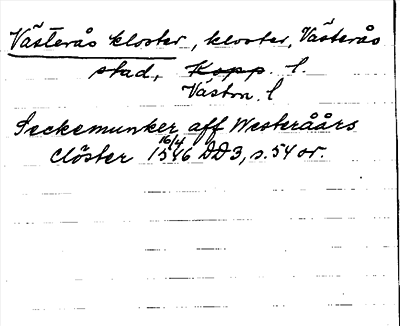 Västerås kloster, kloster, Västerås
stad, Kopp. l.
Västm. l
Seckemunker aff Westeråårs
Clöster 16/4 1546 DD3, s. 54 or.